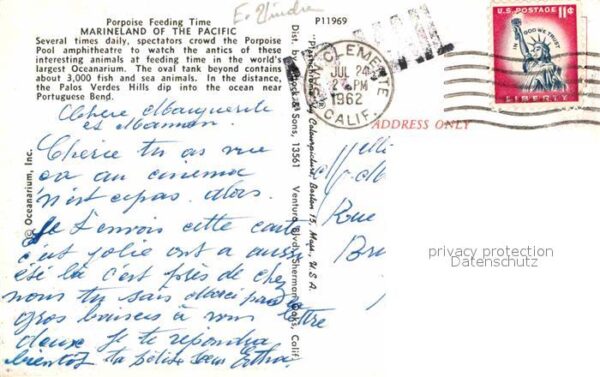 E. Vindre
Porpoise Feeding Time
MARINELAND OF THE PACIFIC
Several times daily, spectators crowd the Porpoise
Pool amphitheatre to watch the antics of these
interesting animals at feeding time in the world's
largest Oceanarium. The oval tank beyond contains
about 3,000 fish and sea animals. In the distance,
the Palos Verdes Hills dip into the ocean near
Portuguese Bend.
© Oceanarium, Inc.
P11969
Dist. by & Sons, 13561 Ventura Blvd., Sherman Oaks, Calif.
"Plastichrome" by Colourpicture, Boston 15, Mass., U.S.A.
CLEMENTE
JUL 24
2 PM
1962
CALIF.
U.S. POSTAGE 11¢
IN GOD WE TRUST
LIBERTY
ADDRESS ONLY
Chère Marguerite
et Maman.
Chérie tu as vue
ça au cinema
n'est cepas. Alors.
Je t'envois cette carte
c'est jolie ont a aussi
été là c'est près de chez
nous tu sais Merci pour lettre
gros baisers à vous
deux. Je te répondrai
bientôt ta
Melle
Rue
Br
privacy protection
Datenschutz